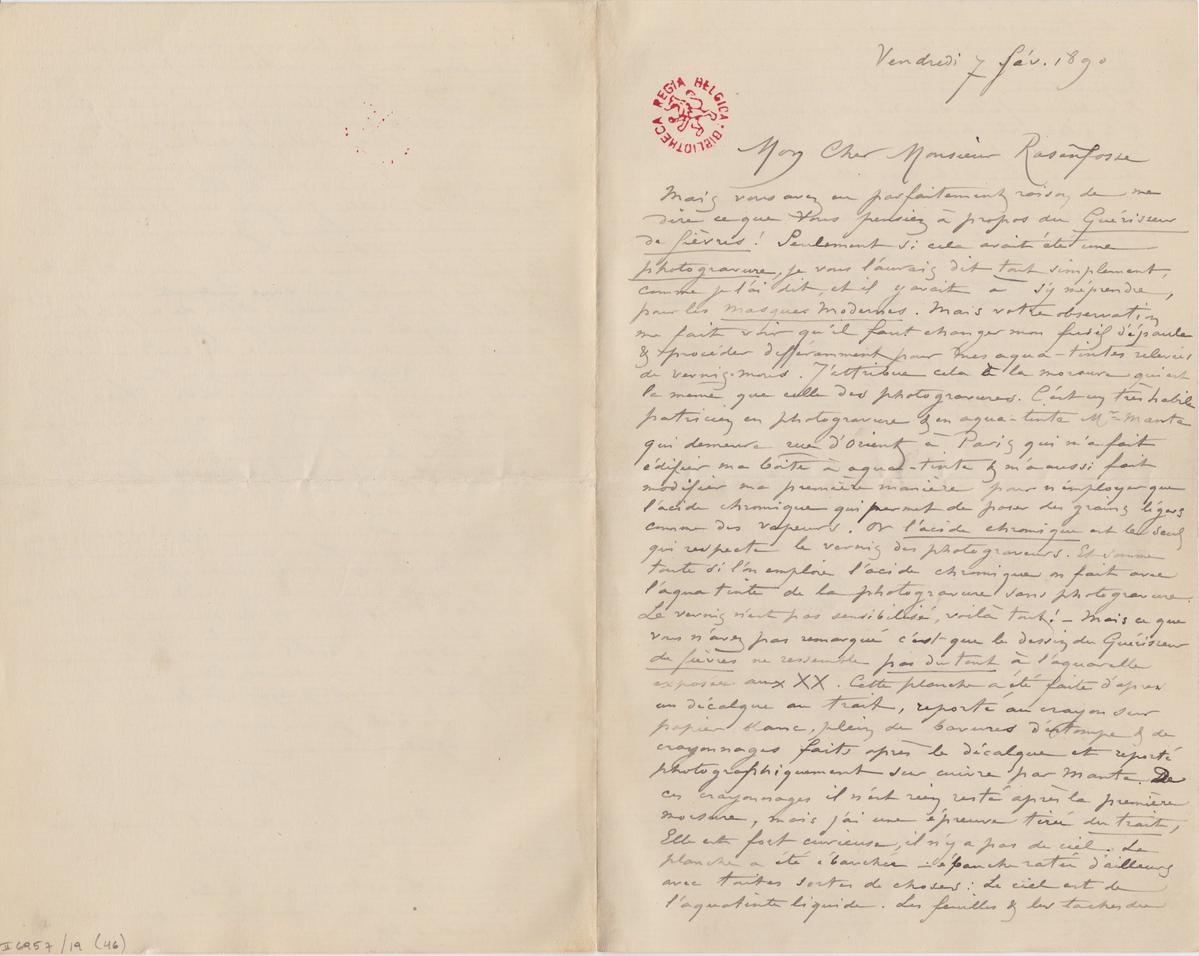 Vendredi 7 fév. 1890
BIBLIOTHECA REGIA BELGICA
Mon Cher Monsieur Rassenfosse
Mais vous avez eu parfaitement raison de me
dire ce que vous pensiez à propos du Guérisseur
de fièvres ! Seulement si cela avait été une
photogravure, je vous l'aurais dit tout simplement,
comme je l'ai dit, et il y avait à s'y méprendre,
pour les masques modernes. Mais votre observation
me fait voir qu'il faut changer mon fusil d'épaule
& procéder différemment pour mes aqua-tintes relevées
de vernis-mous. J'attribue cela à la morsure qui est
la même que celle des photogravures. C'est un très habile
praticien en photogravure & en aqua-tinte Mr Manta
qui demeure rue d'Orient à Paris qui m'a fait
édifier ma boîte à aqua-tinte & m'a aussi fait
modifier ma première manière pour n'employer que
l'acide chromique qui permet de poser des grains légers
comme des vapeurs. Or l'acide chromique est le seul
qui respecte le vernis des photograveurs. Et somme
toute si l'on emploie l'acide chromique on fait avec
l'aqua tinte de la photogravure sans photogravure.
Le vernis n'est pas sensibilisé, voilà tout ! – Mais ce que
vous n'avez pas remarqué c'est que le dessin du Guérisseur
de fièvres ne ressemble pas du tout à l'aquarelle
exposée aux XX. Cette planche a été faite d'après
un décalque au trait, reporté au crayon sur
papier blanc, plein de bavures d'estompe & de
crayonnages faits après le décalque et reporté
photographiquement sur cuivre par Manta. De
ces crayonnages il n'est rien resté après la première
morsure, mais j'ai une épreuve tirée du trait,
Elle est fort curieuse, il n'y a pas de ciel. La
planche a été ébauchée – ratée d'ailleurs
avec toutes sortes de choses : Le ciel est de
l'aquatinte liquide. Les feuilles & les taches du
II 6957/19 (46)